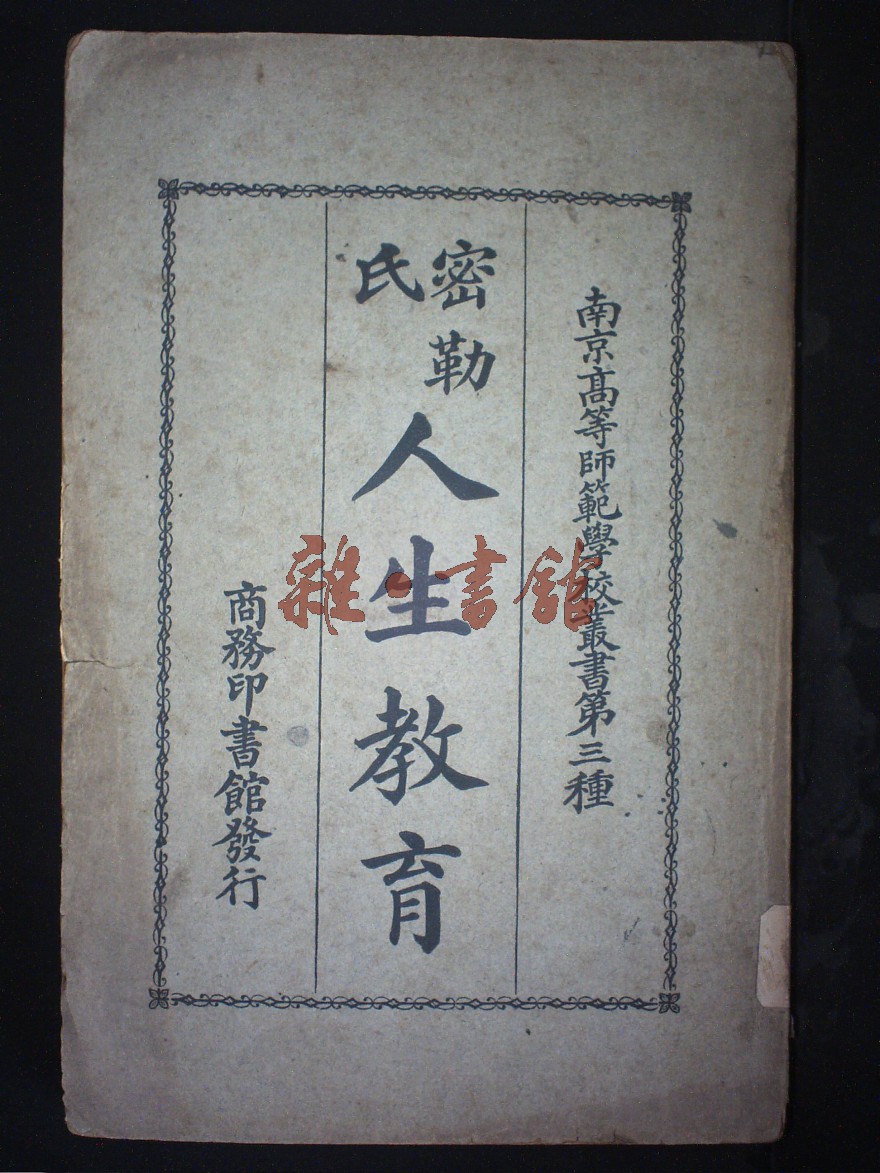 南京高等師範學校叢書第三種
密勒氏
人生教育
商務印書館發行
雜·書館